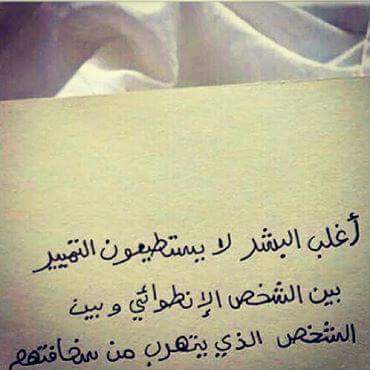 أغلب البشر لا يستطيعون التمييز
بين الشخص الإنطوائي وبين
الشخص الذي يتهرب من سخافتهم